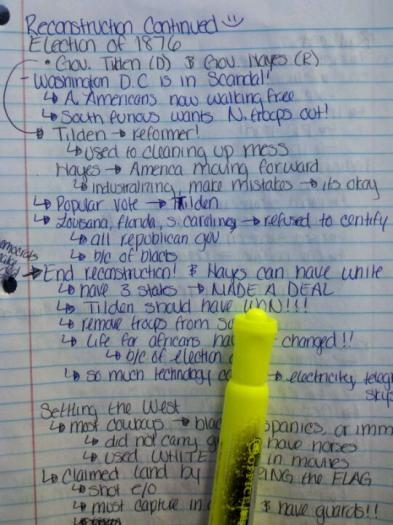 Reconstruction Continued
Election of 1876
• Gov. Tilden (D) & Gov. Hayes (R)
- Washington D.C is in Scandal!
↳ A. Americans now walking free
↳ South furious wants N. troops out!
Tilden → reformer!
↳ used to cleaning up mess
Hayes → America moving forward
↳ industrializing, make mistakes → its okay
↳ Popular vote → Tilden
↳ Lousana, florida, s. carolines → refused to certify
↳ all republican gov
↳ b/c of blacks
→ End reconstruction! & Hayes can have white
↳ have 3 states → MADE A DEAL
↳ Tilden should have WON!!!
↳ remove troops from
↳ Life for africans changed!!
↳ b/c of election
↳ so much technology → electricity,
Settling the West
↳ most cowboys →
↳ did not carry have horses
↳ used WHITE in movies
↳ Claimed land by the FLAG
↳ shot e/o
↳ most capture in & have guards!!